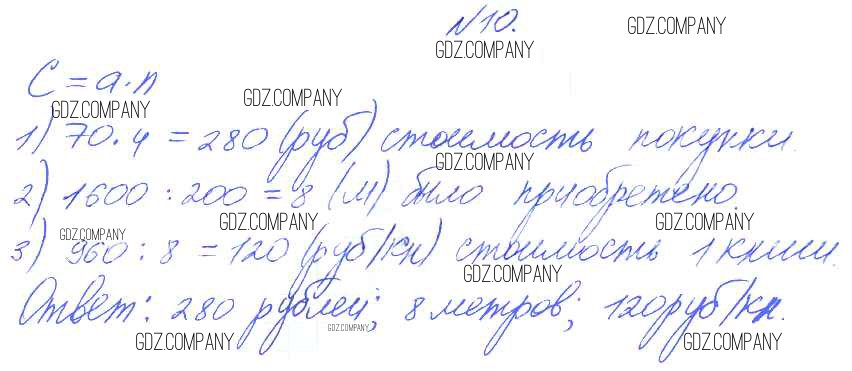 №10.
GDZ.COMPANY GDZ.COMPANY
C = a · n
GDZ.COMPANY GDZ.COMPANY
1) 70 · 4 = 280 (руб) стоимость покупки.
GDZ.COMPANY
2) 1600 : 200 = 8 (м) было приобретено.
GDZ.COMPANY GDZ.COMPANY GDZ.COMPANY
3) 960 : 8 = 120 (руб/кн) стоимость 1 книги.
GDZ.COMPANY
Ответ: 280 рублей; 8 метров; 120 руб/кн.
GDZ.COMPANY GDZ.COMPANY GDZ.COMPANY